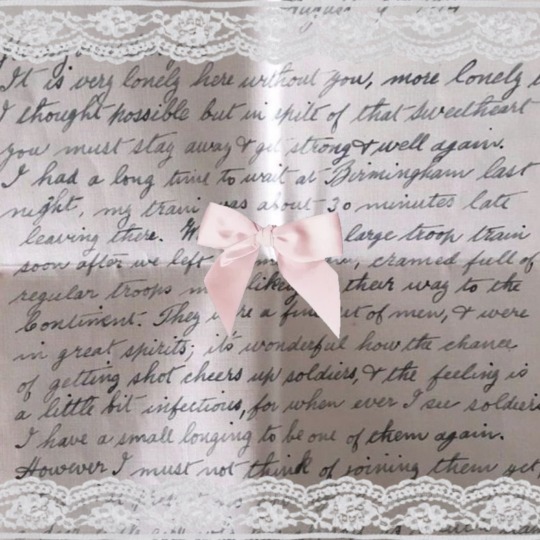 It is very lonely here without you, more lonely
I thought possible but in spite of that sweetheart
you must stay away & get strong & well again.
I had a long time to wait at Birmingham last
night, my train was about 30 minutes late
leaving there. large troop train
soon after we left cramed full of
regular troops likely their way to the
Continent. They are a fine of men, & were
in great spirits; it's wonderful how the chance
of getting shot cheers up soldiers, & the feeling is
a little bit infectious, for when ever I see soldiers
I have a small longing to be one of them again.
However I must not think of joining them yet,